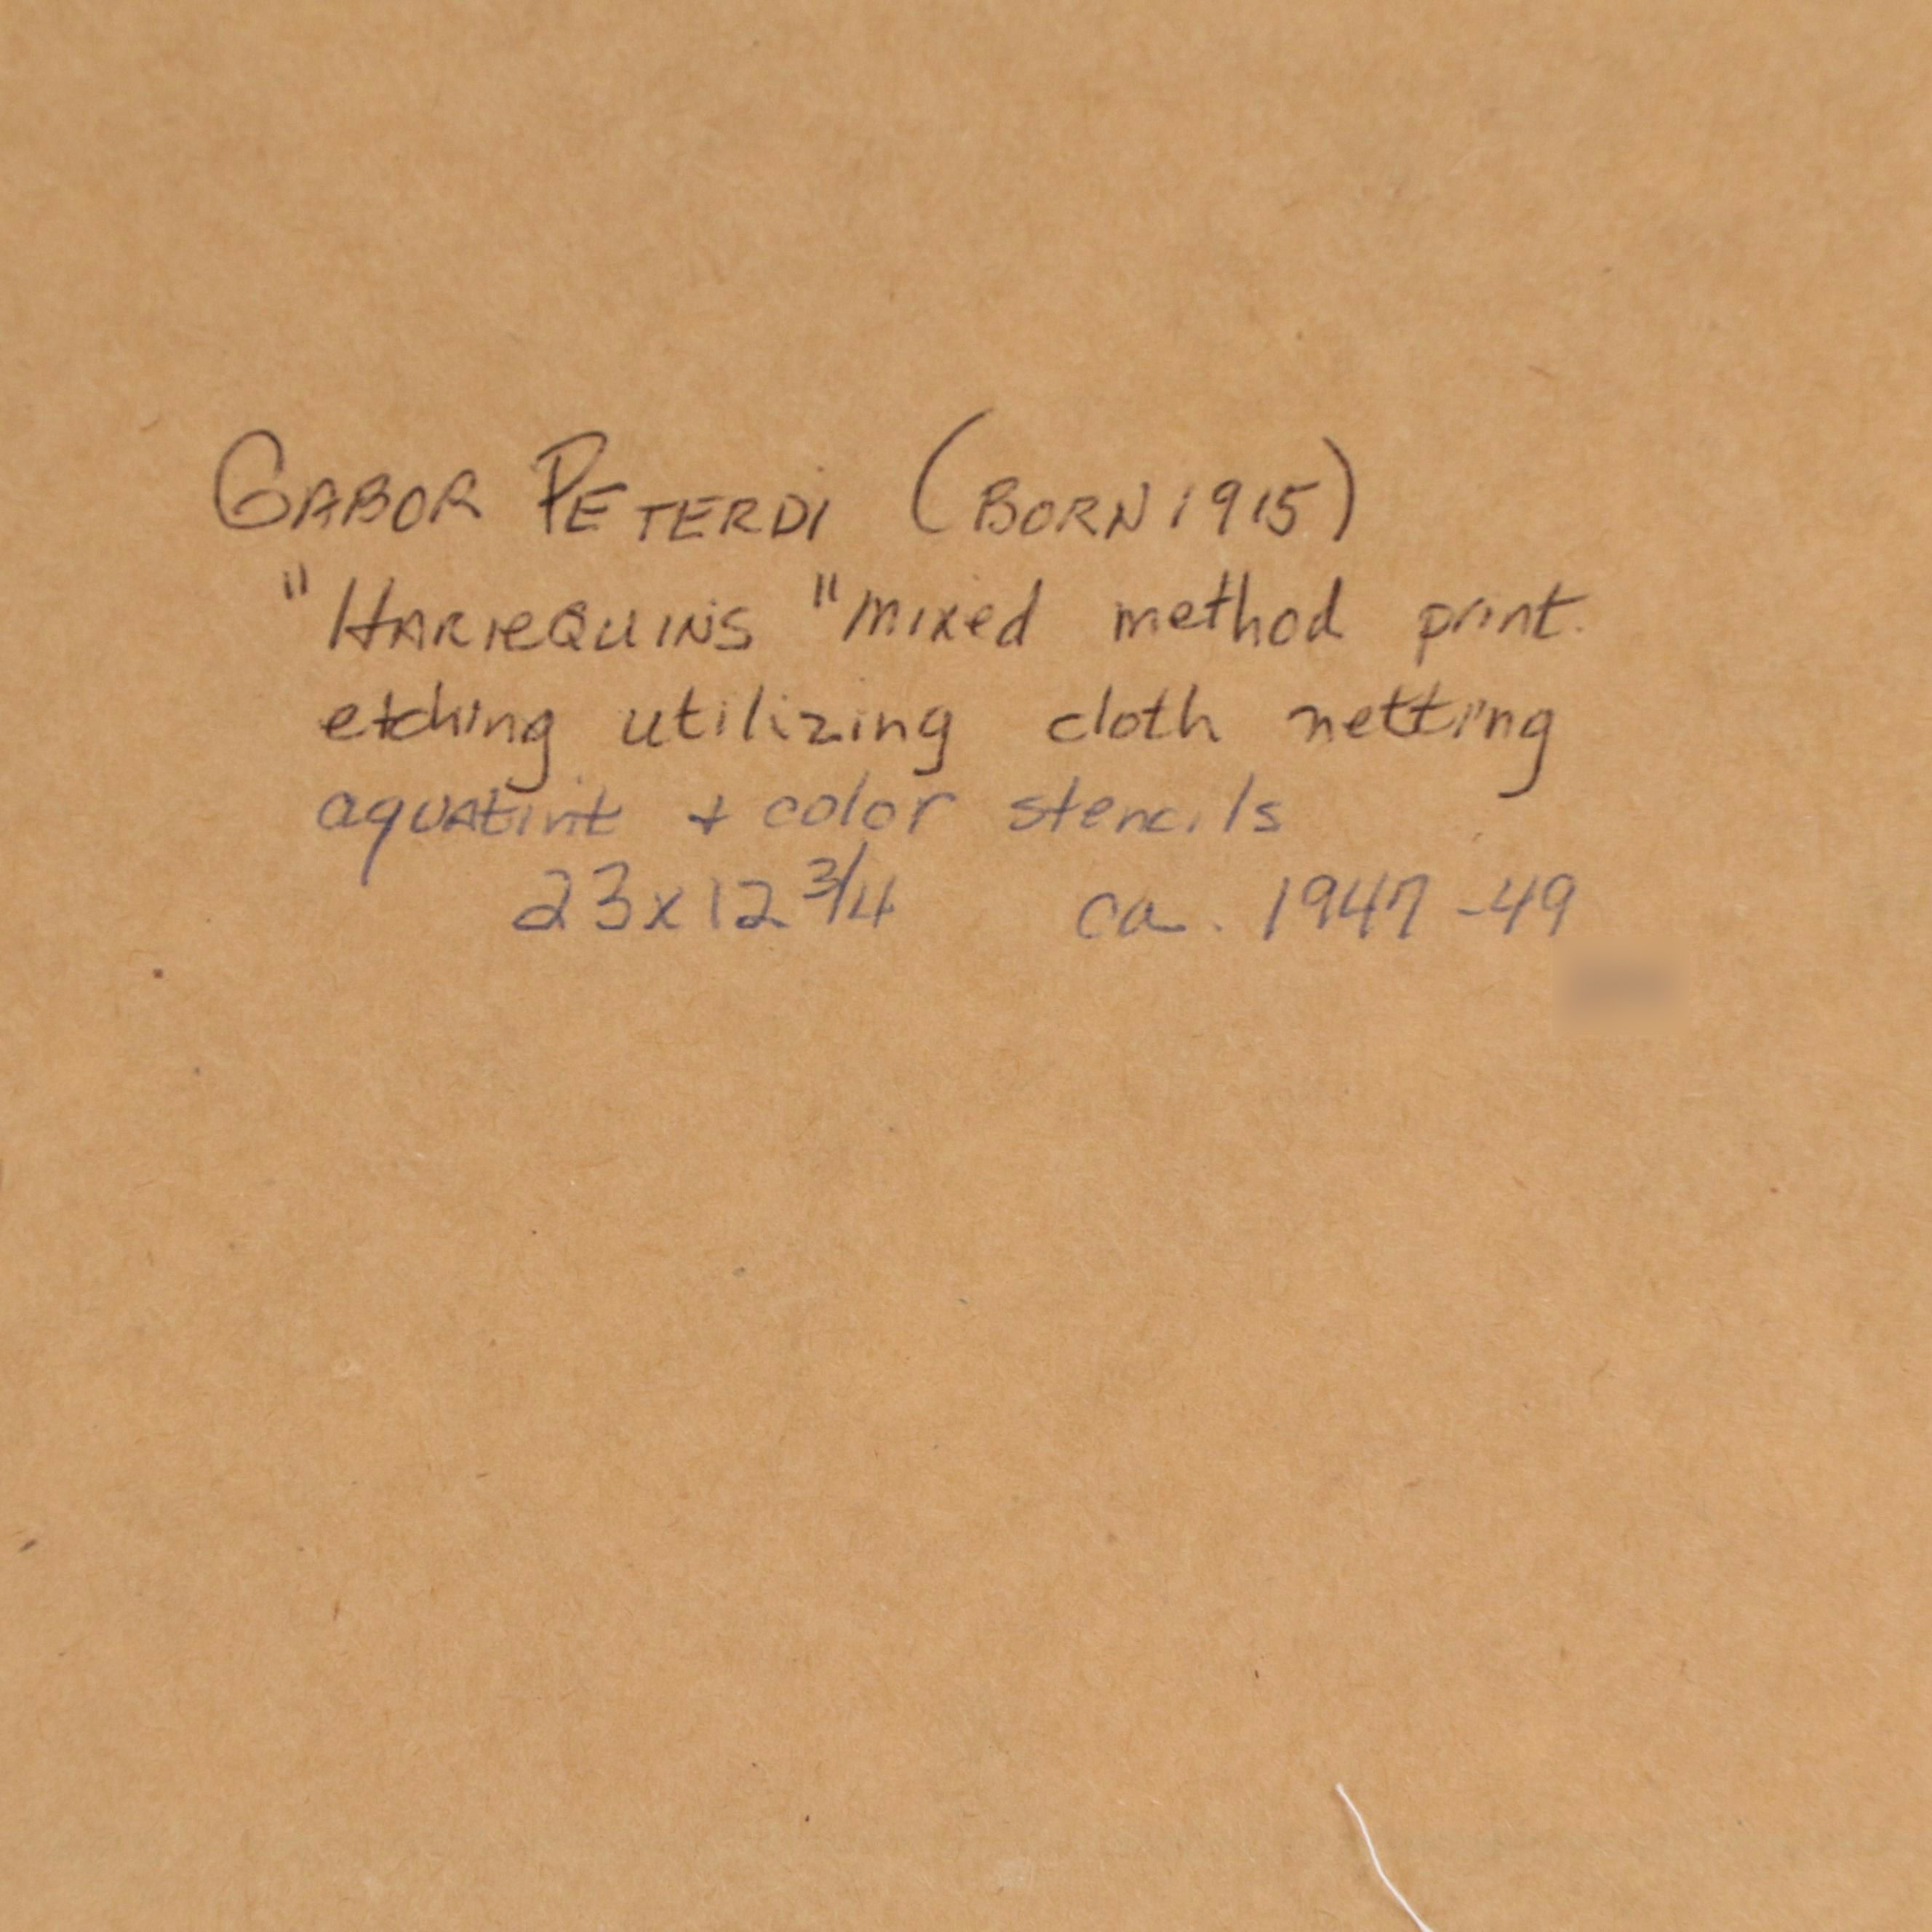 GABOR PETERDI (BORN 1915)
"HARLEQUINS" mixed method print.
etching utilizing cloth netting
aquatint + color stencils
23x12 3/4 ca. 1947-49